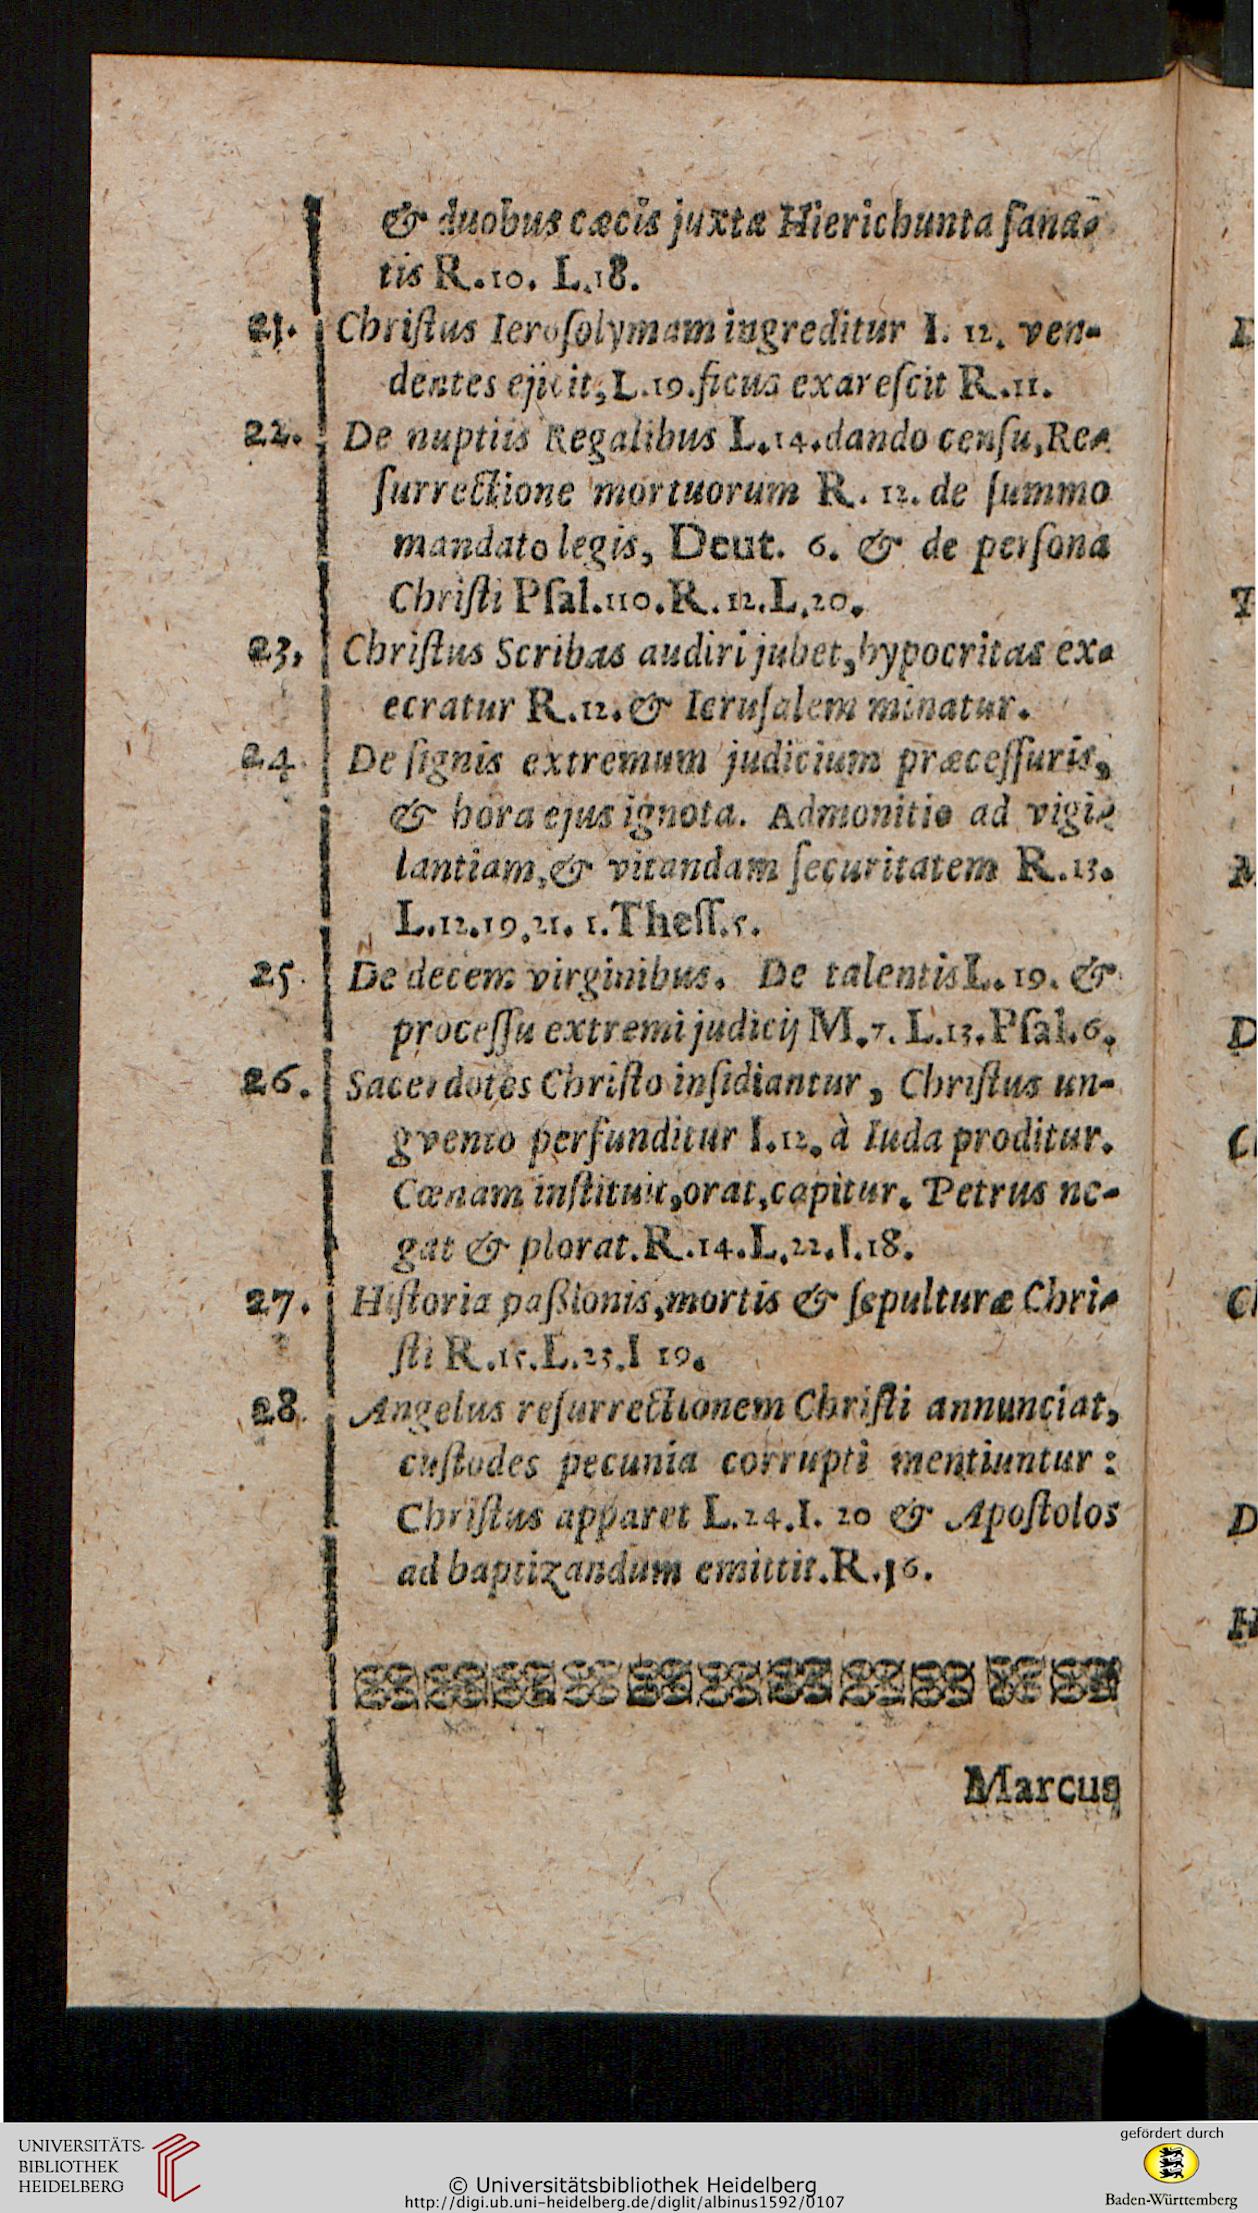 & duobus cæcis juxta Hierichunta ſana-
tis R. 10. L. 18.
21. Chriſtus Ieroſolymam ingreditur I. 12. ven-
dentes ejicit, L. 19. ficus exareſcit R. 11.
22. De nuptiis Regalibus L. 14. dando cenſu, Re-
ſurrectione mortuorum R. 12. de ſummo
mandato legis, Deut. 6. & de perſona
Chriſti Pſal. 110. R. 12. L. 20.
23. Chriſtus Scribas audiri jubet, hypocritas ex-
ecratur R. 12. & Ieruſalem minatur.
24. De ſignis extremum judicium præceſſuris,
& hora ejus ignota. Admonitio ad vigi-
lantiam, & vitandam ſecuritatem R. 13.
L. 12. 19. 21. 1. Theſſ. 5.
25. De decem virginibus. De talentis L. 19. &
proceſſu extremi judicij M. 7. L. 13. Pſal. 6.
26. Sacerdotes Chriſto inſidiantur, Chriſtus un-
gvento perfunditur I. 12. à Iuda proditur.
Cœnam inſtituit, orat, capitur. Petrus ne-
gat & plorat. R. 14. L. 22. I. 18.
27. Hiſtoria paßionis, mortis & ſepulturæ Chri-
ſti R. 15. L. 23. I 19.
28. Angelus reſurrectionem Chriſti annunciat,
cuſtodes pecunia corrupti mentiuntur:
Chriſtus apparet L. 24. I. 20 & Apoſtolos
ad baptizandum emittit. R. 16.
Marcus
UNIVERSITÄTS-
BIBLIOTHEK
HEIDELBERG
© Universitätsbibliothek Heidelberg
http://digi.ub.uni-heidelberg.de/diglit/albinus1592/0107
gefördert durch
Baden-Württemberg